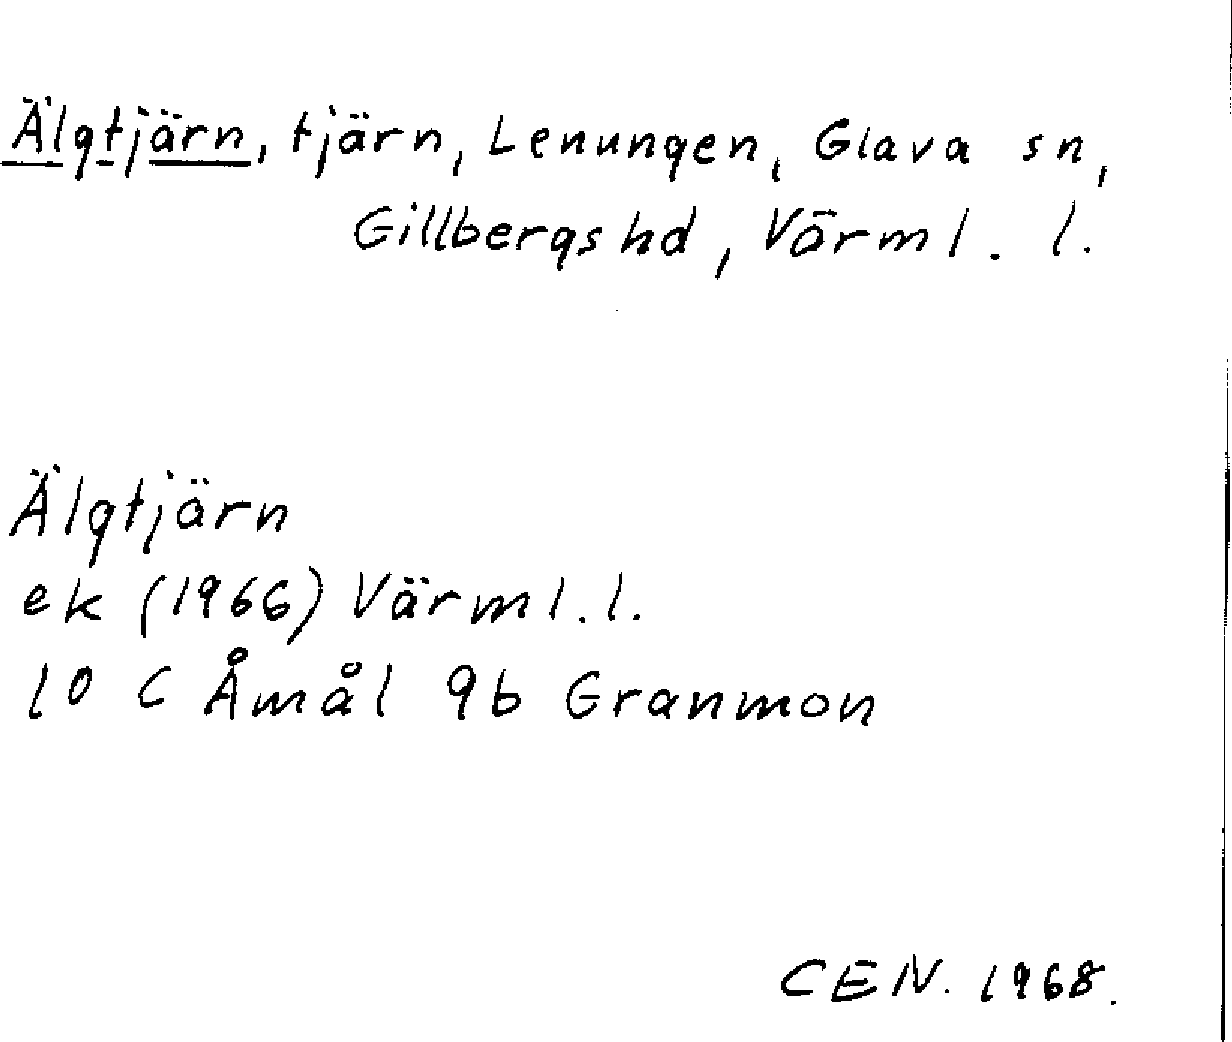 Älgtjärn, tjärn, Lenungen, Glava sn,
Gillbergs hd, Värml. l.
Älgtjärn
ek (1966) Värml. l.
10 C Åmål 9b Granmon
CEN. 1968.